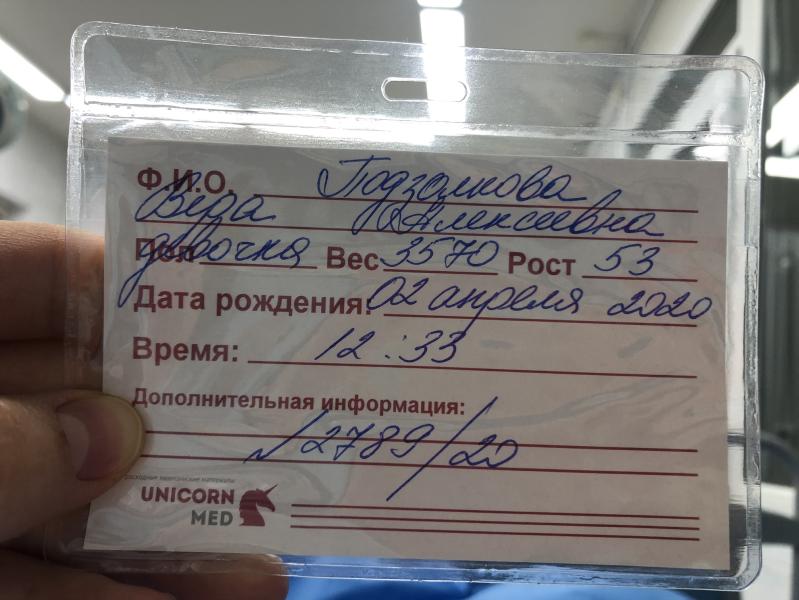 Ф.И.О. Подзолкова
Вера Алексеевна
Пол девочка Вес 3570 Рост 53
Дата рождения: 02 апреля 2020
Время: 12:33
Дополнительная информация:
№2789/20
расходные медицинские материалы
UNICORN
MED